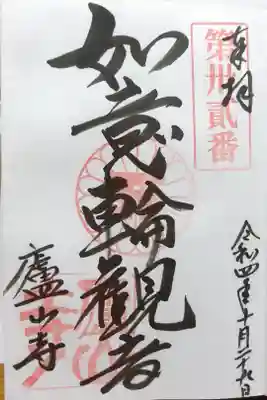 奉拝
第卅貳番
令和四年十月二十九日
如意輪觀音
廬山寺